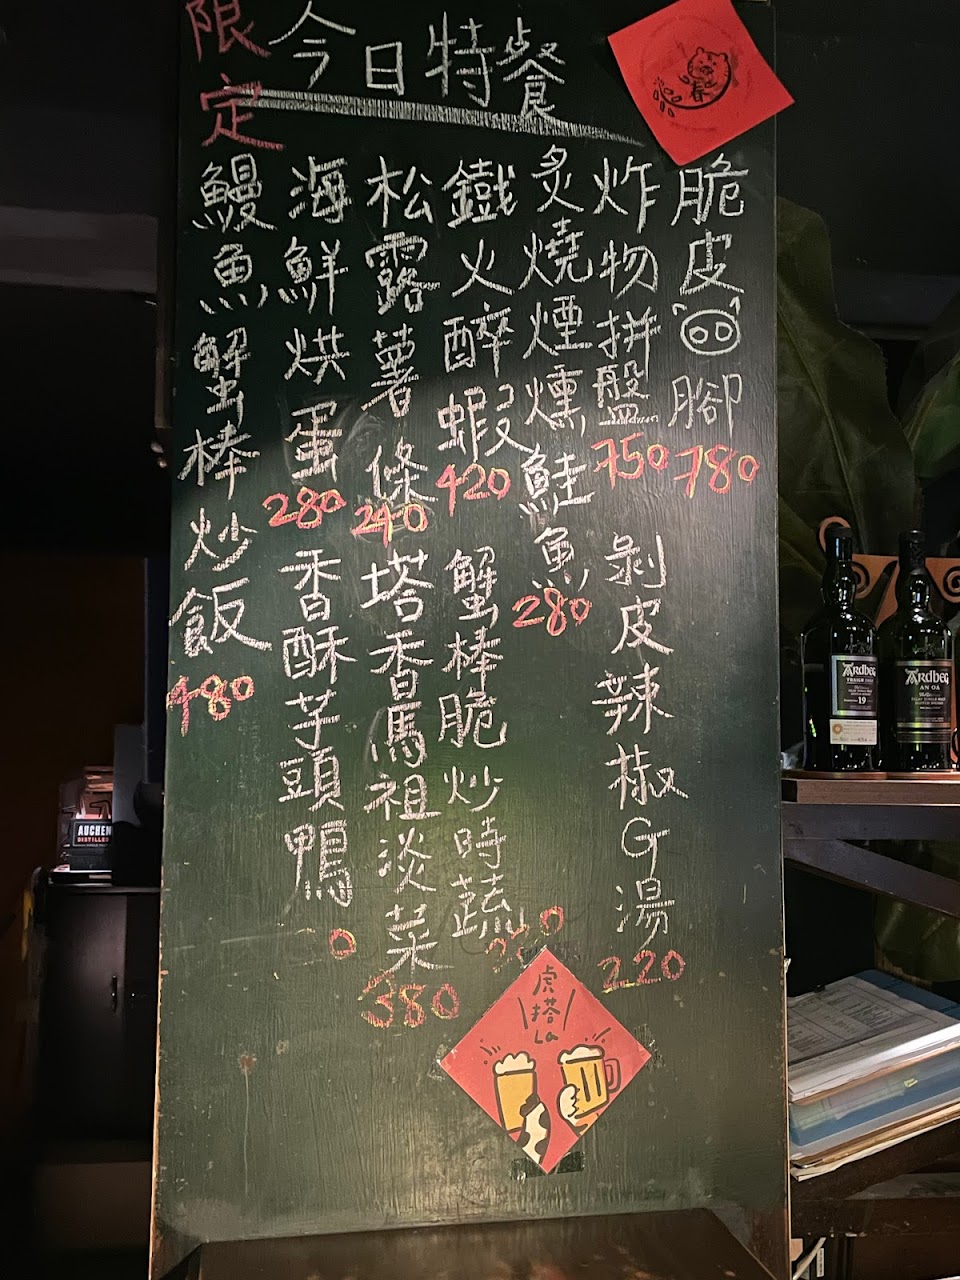 限定
今日特餐
春
脆皮腳
780
炸物拼盤
750
炙燒煙燻鮭魚
280
鐵火醉蝦
420
松露薯條
240
海鮮烘蛋
280
鰻魚蟹棒炒飯
480
剝皮辣椒G湯
220
蟹棒脆炒時蔬
塔香馬祖淡菜
380
香酥芋頭鴨
虎搭La
ARDBEG
19
ARDBEG
AN OA
AUCHEN
DISTILLE